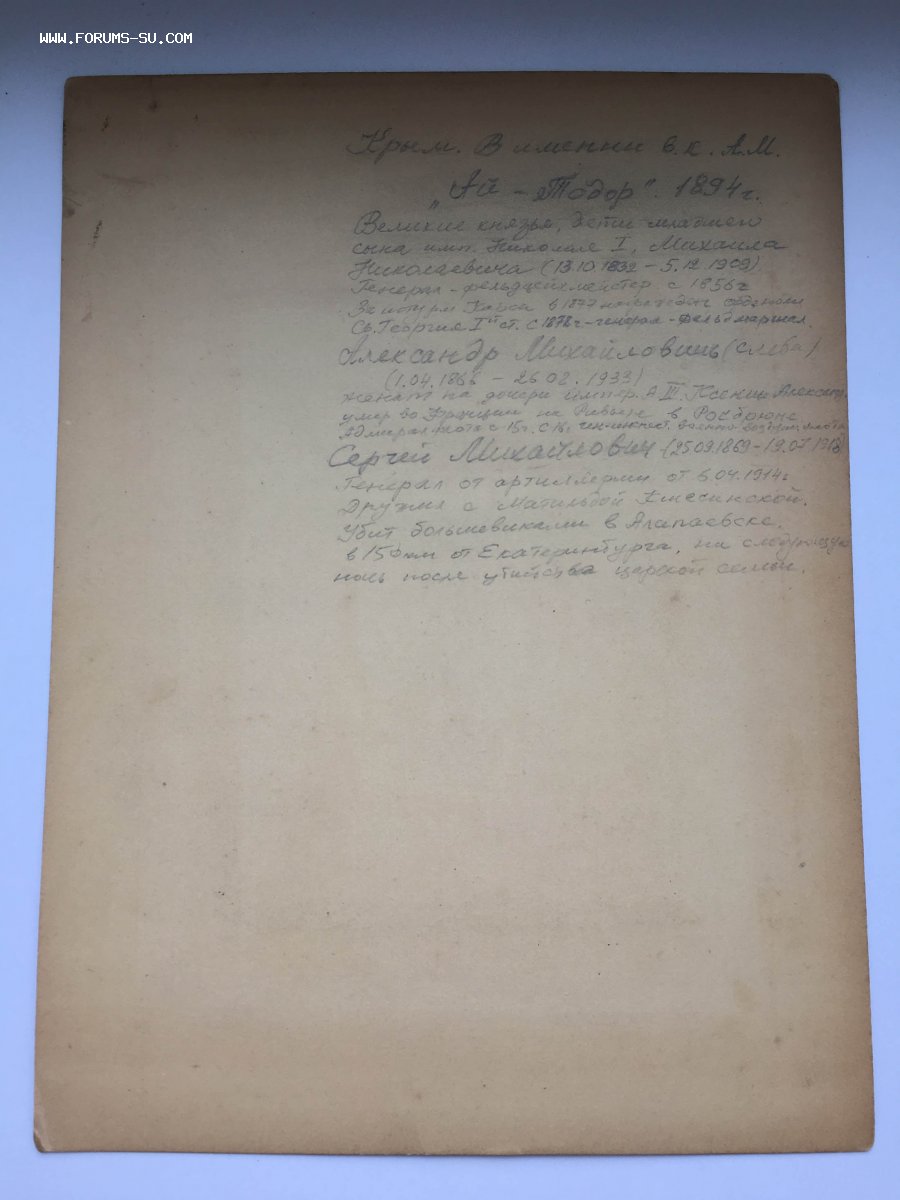 WWW.FORUMS-SU.COM
Крым. В имении в.к. А.М.
„Ай-Тодор". 1894 г.
Великие князья, дети младшего
сына имп. Николая I, Михаила
Николаевича (13.10.1832 – 5.12.1909)
Генерал-фельдцейхмейстер с 1856 г
За штурм Карса в 1877 награжден орденом
Св. Георгия I ст. с 1878 г – генерал-фельдмаршал.
Александр Михайлович (слева)
(1.04.1866 – 26.02.1933)
женат на дочери импер. А III. Ксении Александ
умер во Франции на Ривьере в Рокбрюне
Адмирал флота с 15 г. с 16 г.
Сергей Михайлович (25.09.1869 – 19.07.1918)
Генерал от артиллерии от 6.04.1914 г
Дружил с Матильдой Кшесинской.
Убит большевиками в Алапаевске,
в 150 км от Екатеринбурга, на следующую
ночь после убийства царской семьи.